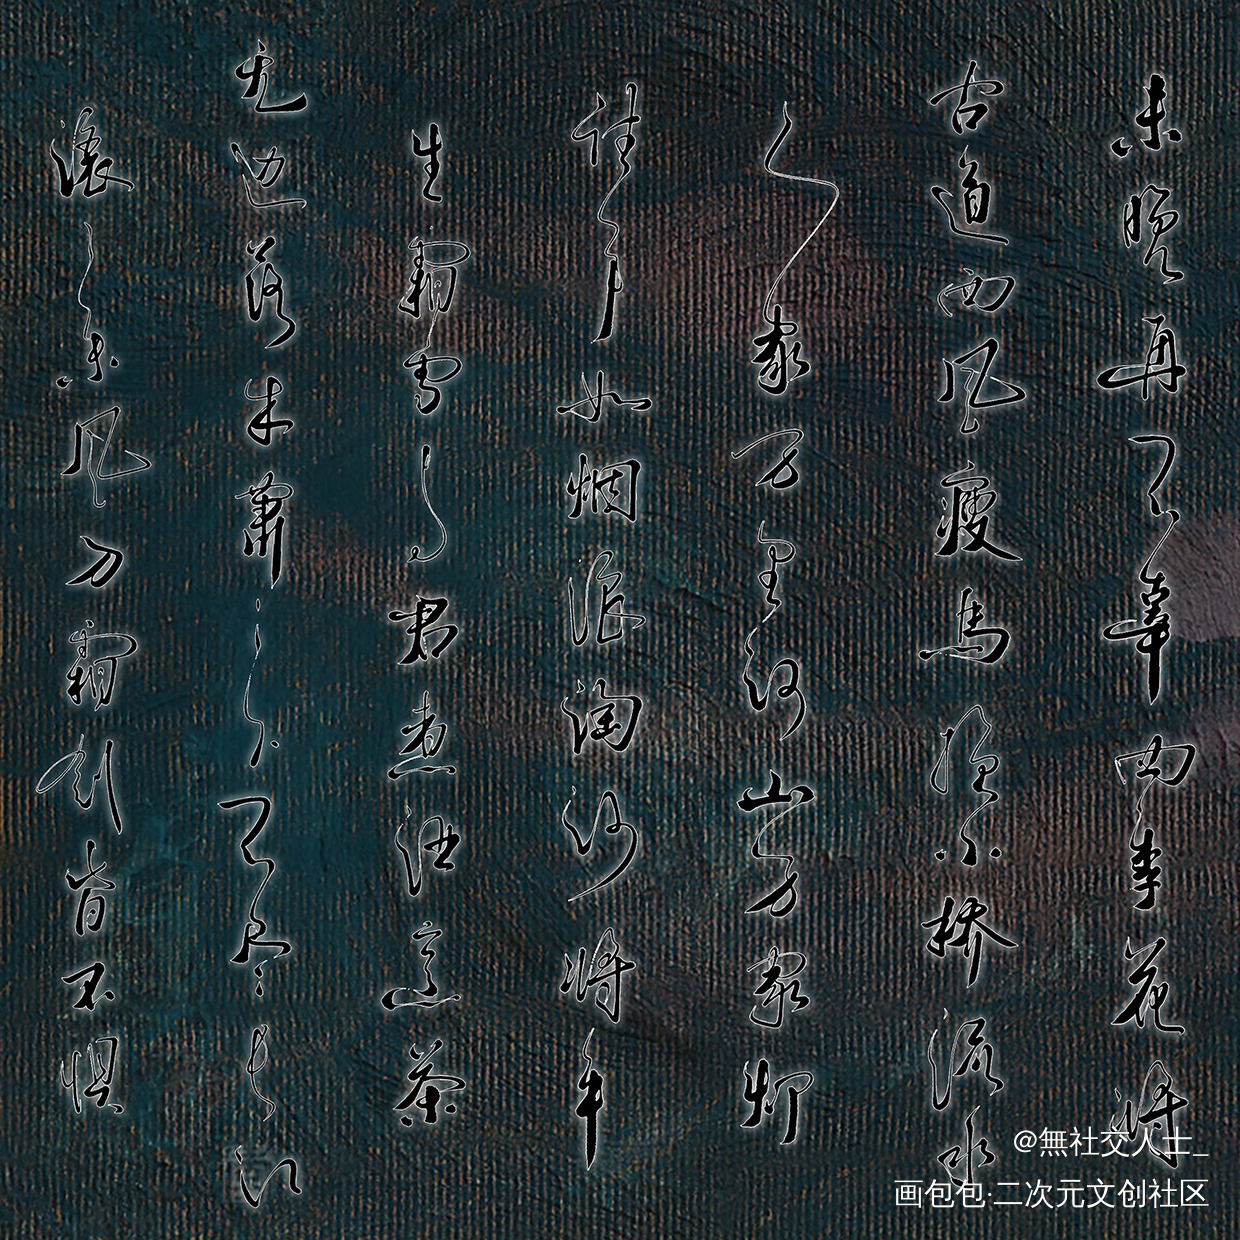 未晚再不辜两季花将
古道西风瘦马 小桥流水
人家万里河山万家灯
往事如烟浪淘沙将半
生霜雪与君煮酒烹茶
无边落木萧萧下不尽长江
滚滚来风刀霜剑皆不惧
@無社交人士_
画包包·二次元文创社区